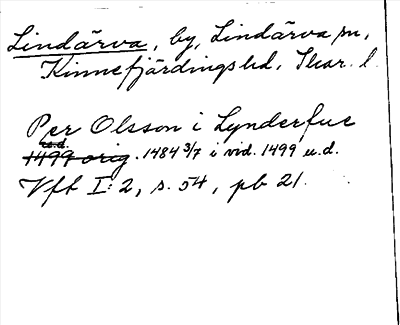 Lindärva, by, Lindärva sn,
Kinnefjärdings hd, Skar. l.
Per Olsson i Lynderfue
u.d.
1499 orig. 1484 3/7 i vid. 1499 u.d.
Vft I: 2, s. 54, pb 21.